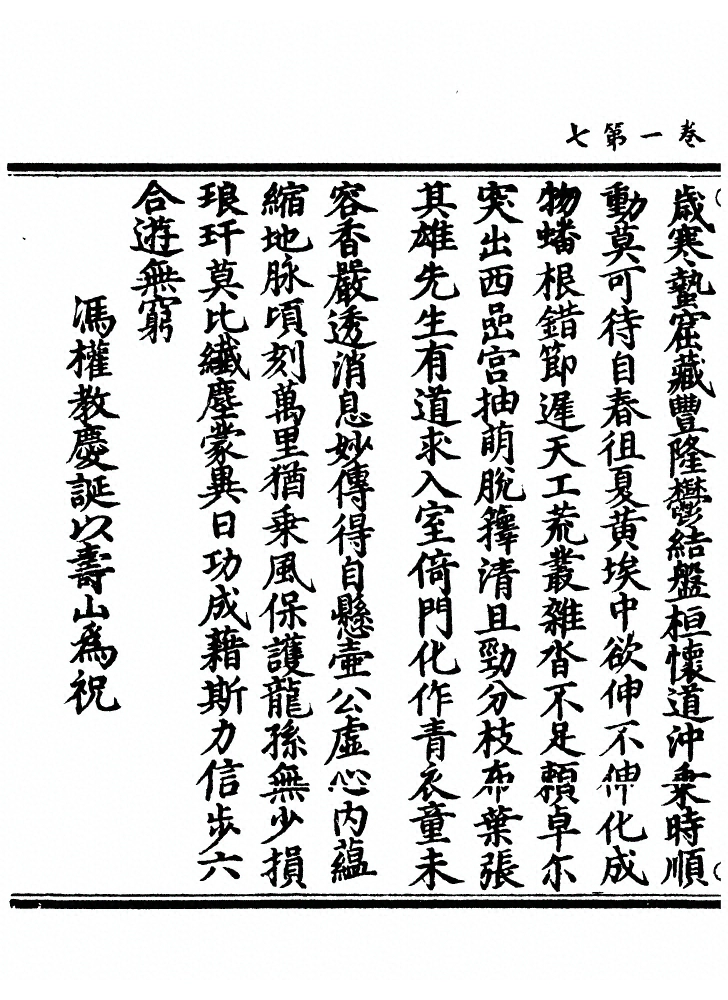 卷一第七
歲寒蟄窟藏豐隆鬱結盤桓懷道沖乘時順
動莫可待自春徂夏黃埃中欲伸不伸化成
物蟠根錯節遲天工荒叢雜沓不足賴卓尔
突出西嵒宮抽萌脫籜清且勁分枝布葉張
其雄先生有道求入室倚門化作青衣童未
容香嚴透消息妙傳得自懸壺公虛心內蘊
縮地脉頃刻萬里猶乘風保護龍孫無少損
琅玕莫比纖塵蒙異日功成藉斯力信步六
合遊無窮
馮權教慶誕以壽山為祝